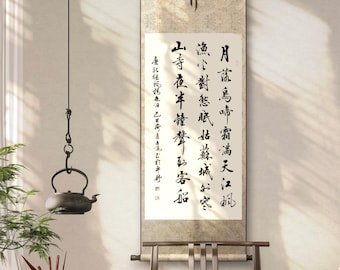 月落烏啼霜滿天江楓
漁火對愁眠姑蘇城外寒
山寺夜半鐘聲到客船
唐張繼楓橋夜泊